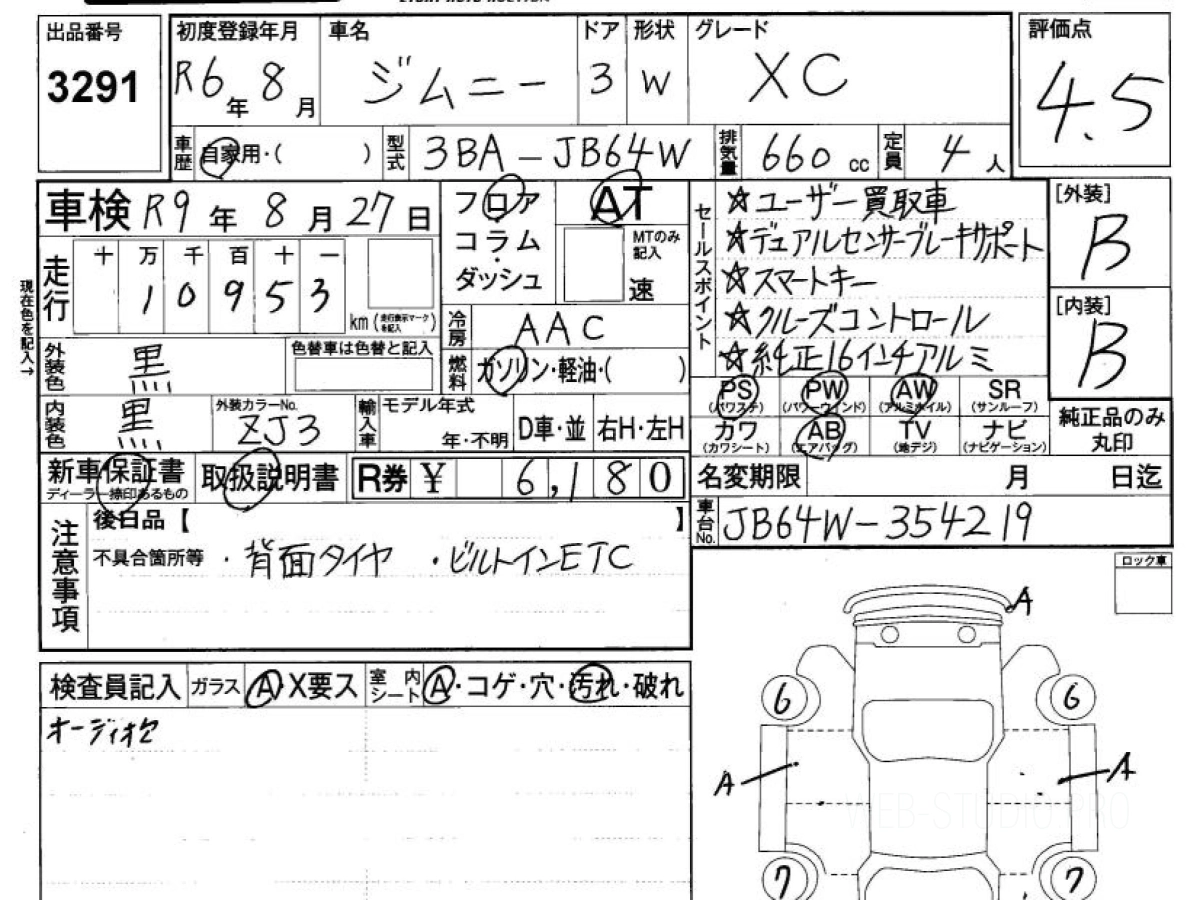 出品番号 3291
初度登録年月 R6年8月
車名 ジムニー
ドア 3
形状 W
グレード XC
評価点 4.5
車歴 自家用・( )
型式 3BA-JB64W
排気量 660 cc
定員 4人
車検 R9年8月27日
フロア コラム ・ ダッシュ
AT MTのみ記入 速
走行 十 万 千 百 十 一
1 0 9 5 3 km (走行表示マークを記入)
現在色を記入→
冷房 AAC
燃料 ガソリン・軽油・( )
外装色 黒
色替車は色替と記入
内装色 黒
外装カラーNo. ZJ3
輸入車 モデル年式 年・不明 D車・並 右H・左H
セールスポイント
☆ユーザー買取車
☆デュアルセンサーブレーキサポート
☆スマートキー
☆クルーズコントロール
☆純正16インチアルミ
[外装] B
[内装] B
PS (パワステ) PW (パワーウインド) AW (アルミホイル) SR (サンルーフ)
カワ (カワシート) AB (エアバッグ) TV (地デジ) ナビ (ナビゲーション)
純正品のみ丸印
新車保証書 ディーラー捺印あるもの
取扱説明書
R券 ¥ 6,180
名変期限 月 日迄
車台No. JB64W-354219
注意事項
後日品【 】
不具合箇所等 ・背面タイヤ ・ビルトインETC
ロック車
検査員記入 ガラス A・X要ス 室内シート A・コゲ・穴・汚れ・破れ
A
オーディオ欠
6 6
A A
WEB-STUDIO.PRO
7 7